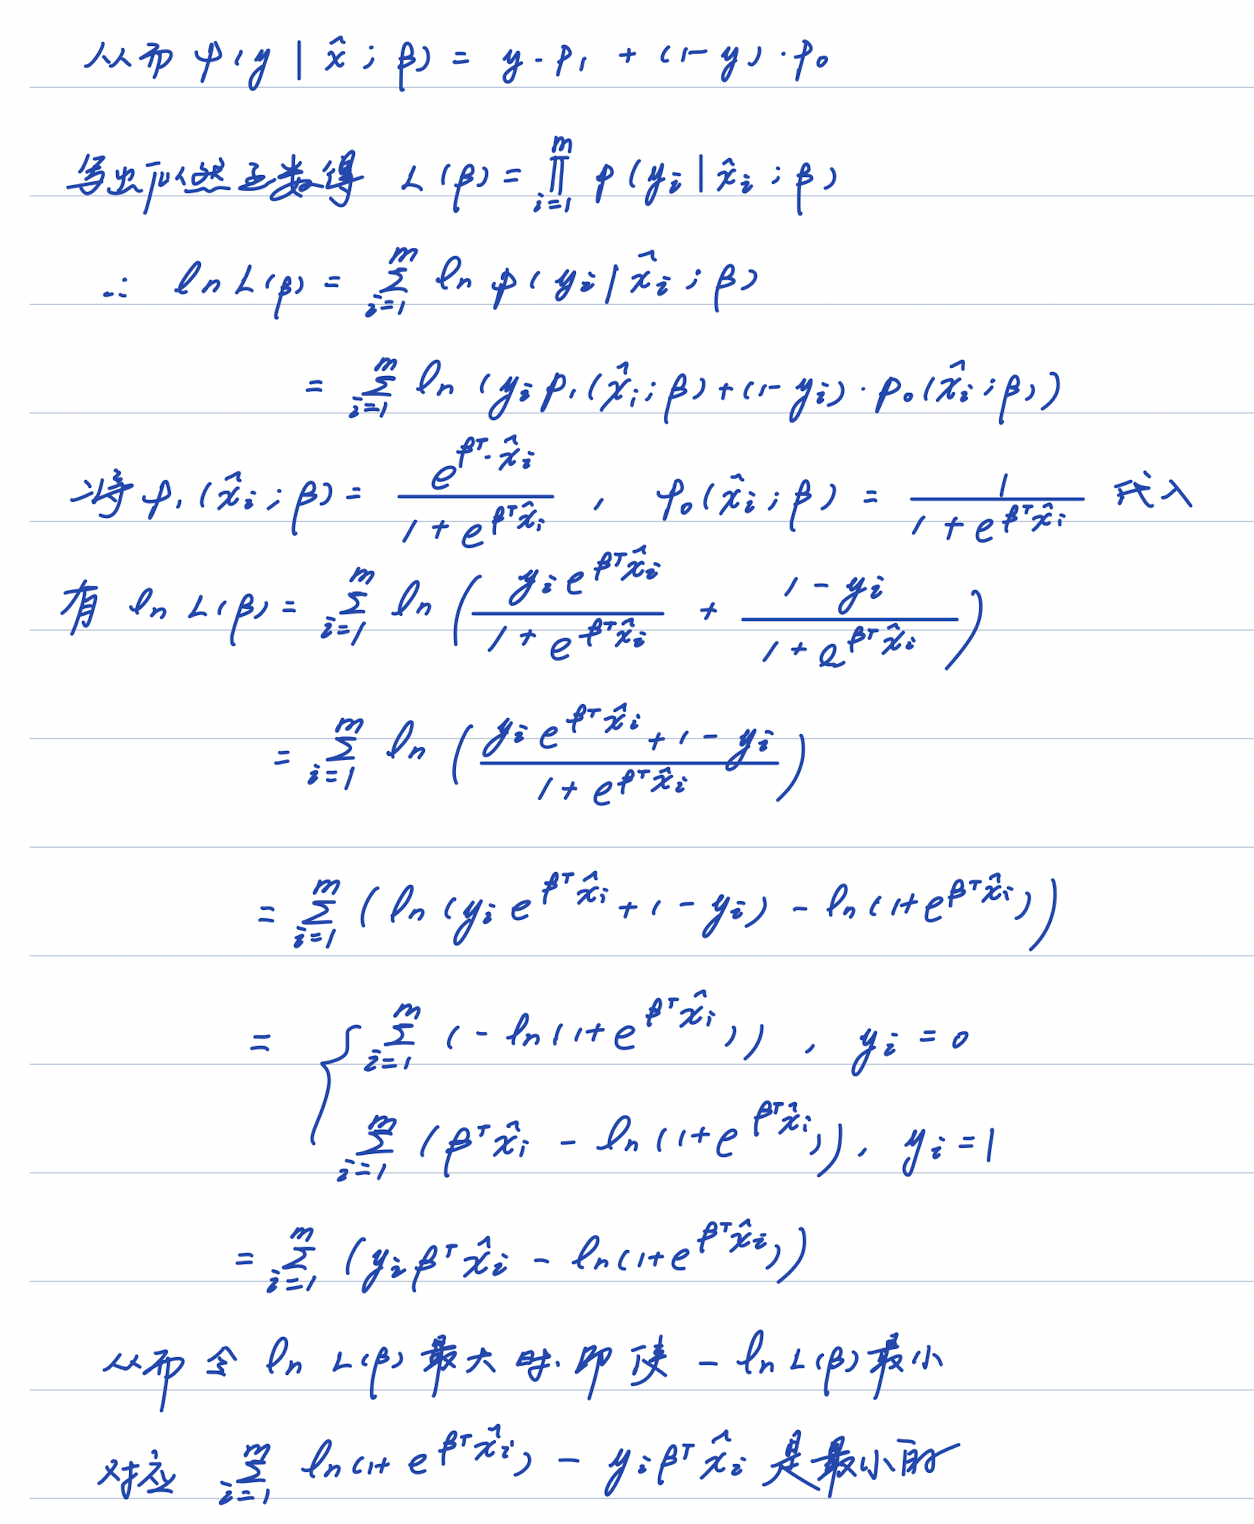 从而 p(y | x̂ ; β) = y · p₁ + (1-y) · p₀
写出似然函数得 L(β) = ∏_{i=1}^{m} p(yᵢ | x̂ᵢ ; β)
∴ ln L(β) = ∑_{i=1}^{m} ln p(yᵢ | x̂ᵢ ; β)
= ∑_{i=1}^{m} ln (yᵢ p₁(x̂ᵢ ; β) + (1-yᵢ) · p₀(x̂ᵢ ; β))
将 p₁(x̂ᵢ ; β) = e^{β^T · x̂ᵢ} / (1 + e^{β^T x̂ᵢ}) , p₀(x̂ᵢ ; β) = 1 / (1 + e^{β^T x̂ᵢ}) 代入
有 ln L(β) = ∑_{i=1}^{m} ln ( yᵢ e^{β^T x̂ᵢ} / (1 + e^{β^T x̂ᵢ}) + (1 - yᵢ) / (1 + e^{β^T x̂ᵢ}) )
= ∑_{i=1}^{m} ln ( (yᵢ e^{β^T x̂ᵢ} + 1 - yᵢ) / (1 + e^{β^T x̂ᵢ}) )
= ∑_{i=1}^{m} ( ln (yᵢ e^{β^T x̂ᵢ} + 1 - yᵢ) - ln (1 + e^{β^T x̂ᵢ}) )
= { ∑_{i=1}^{m} ( - ln (1 + e^{β^T x̂ᵢ}) ) , yᵢ = 0
∑_{i=1}^{m} ( β^T x̂ᵢ - ln (1 + e^{β^T x̂ᵢ}) ) , yᵢ = 1
= ∑_{i=1}^{m} ( yᵢ β^T x̂ᵢ - ln (1 + e^{β^T x̂ᵢ}) )
从而 令 ln L(β) 最大时. 即使 - ln L(β) 最小
对应 ∑_{i=1}^{m} ln (1 + e^{β^T x̂ᵢ}) - yᵢ β^T x̂ᵢ 是最小的